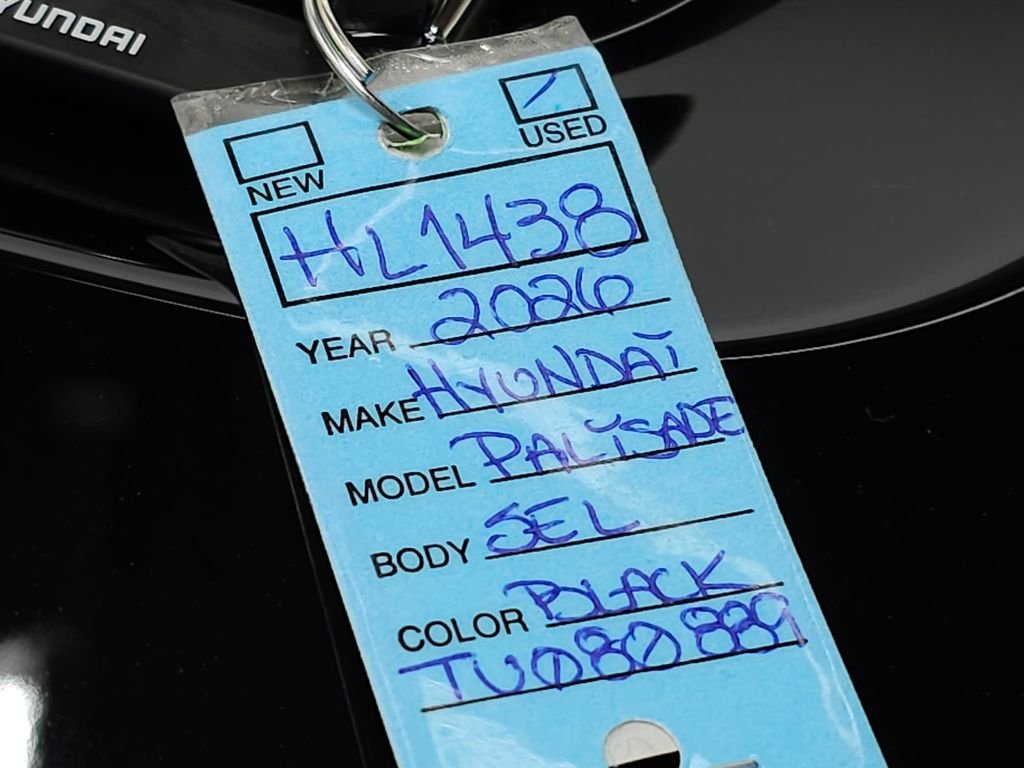 HYUNDAI
NEW
USED
HL1438
YEAR 2026
MAKE HYUNDAI
MODEL PALISADE
BODY SEL
COLOR BLACK
TU080889